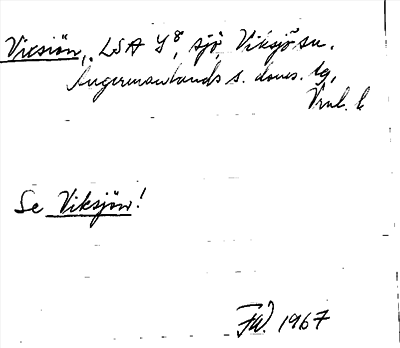 Vicsiön, LSA Y8, sjö, Viksjö sn,
Ångermanlands s. doms. tg,
Vrul. h
Se Viksjön!
FW. 1967